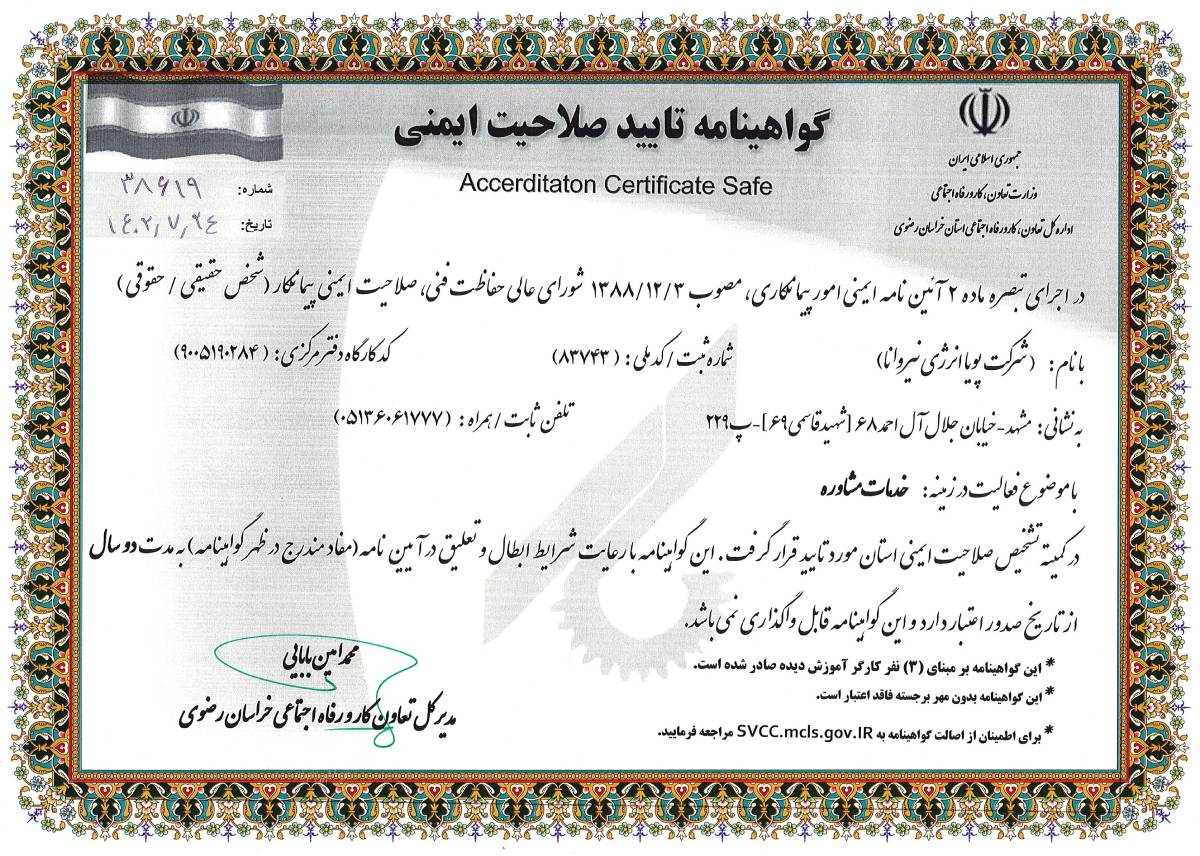 گواهینامه تایید صلاحیت ایمنی
Accerditaton Certificate Safe
جمهوری اسلامی ایران
وزارت تعاون، کار و رفاه اجتماعی
اداره کل تعاون، کار و رفاه اجتماعی استان خراسان رضوی
شماره: ۳۸۶۱۹
تاریخ: ۱۴۰۲/۷/۲۴
در اجرای تبصره ماده ۲ آئین نامه ایمنی امور پیمانکاری، مصوب ۱۳۸۸/۱۲/۳ شورای عالی حفاظت فنی، صلاحیت ایمنی پیمانکار (شخص حقیقی / حقوقی)
با نام: (شرکت پویا انرژی نیروانا) شماره ثبت / کد ملی: (۸۳۷۴۳) کد کارگاه دفتر مرکزی: (۹۰۰۵۱۹۰۲۸۴)
به نشانی: مشهد-خیابان جلال آل احمد ۶۸ [شهید قاسمی ۶۹]-پ ۲۲۹ تلفن ثابت / همراه: (۰۵۱۳۶۰۶۱۷۷۷)
با موضوع فعالیت در زمینه: خدمات مشاوره
در کمیته تشخیص صلاحیت ایمنی استان مورد تایید قرار گرفت. این گواهینامه با رعایت شرایط ابطال و تعلیق در آیین نامه (مفاد مندرج در ظهر گواهینامه) به مدت دو سال
از تاریخ صدور اعتبار دارد و این گواهینامه قابل واگذاری نمی باشد.
* این گواهینامه بر مبنای (۳) نفر کارگر آموزش دیده صادر شده است.
* این گواهینامه بدون مهر برجسته فاقد اعتبار است.
* برای اطمینان از اصالت گواهینامه به SVCC.mcls.gov.IR مراجعه فرمایید.
محمد امین بابایی
مدیر کل تعاون کار و رفاه اجتماعی خراسان رضوی